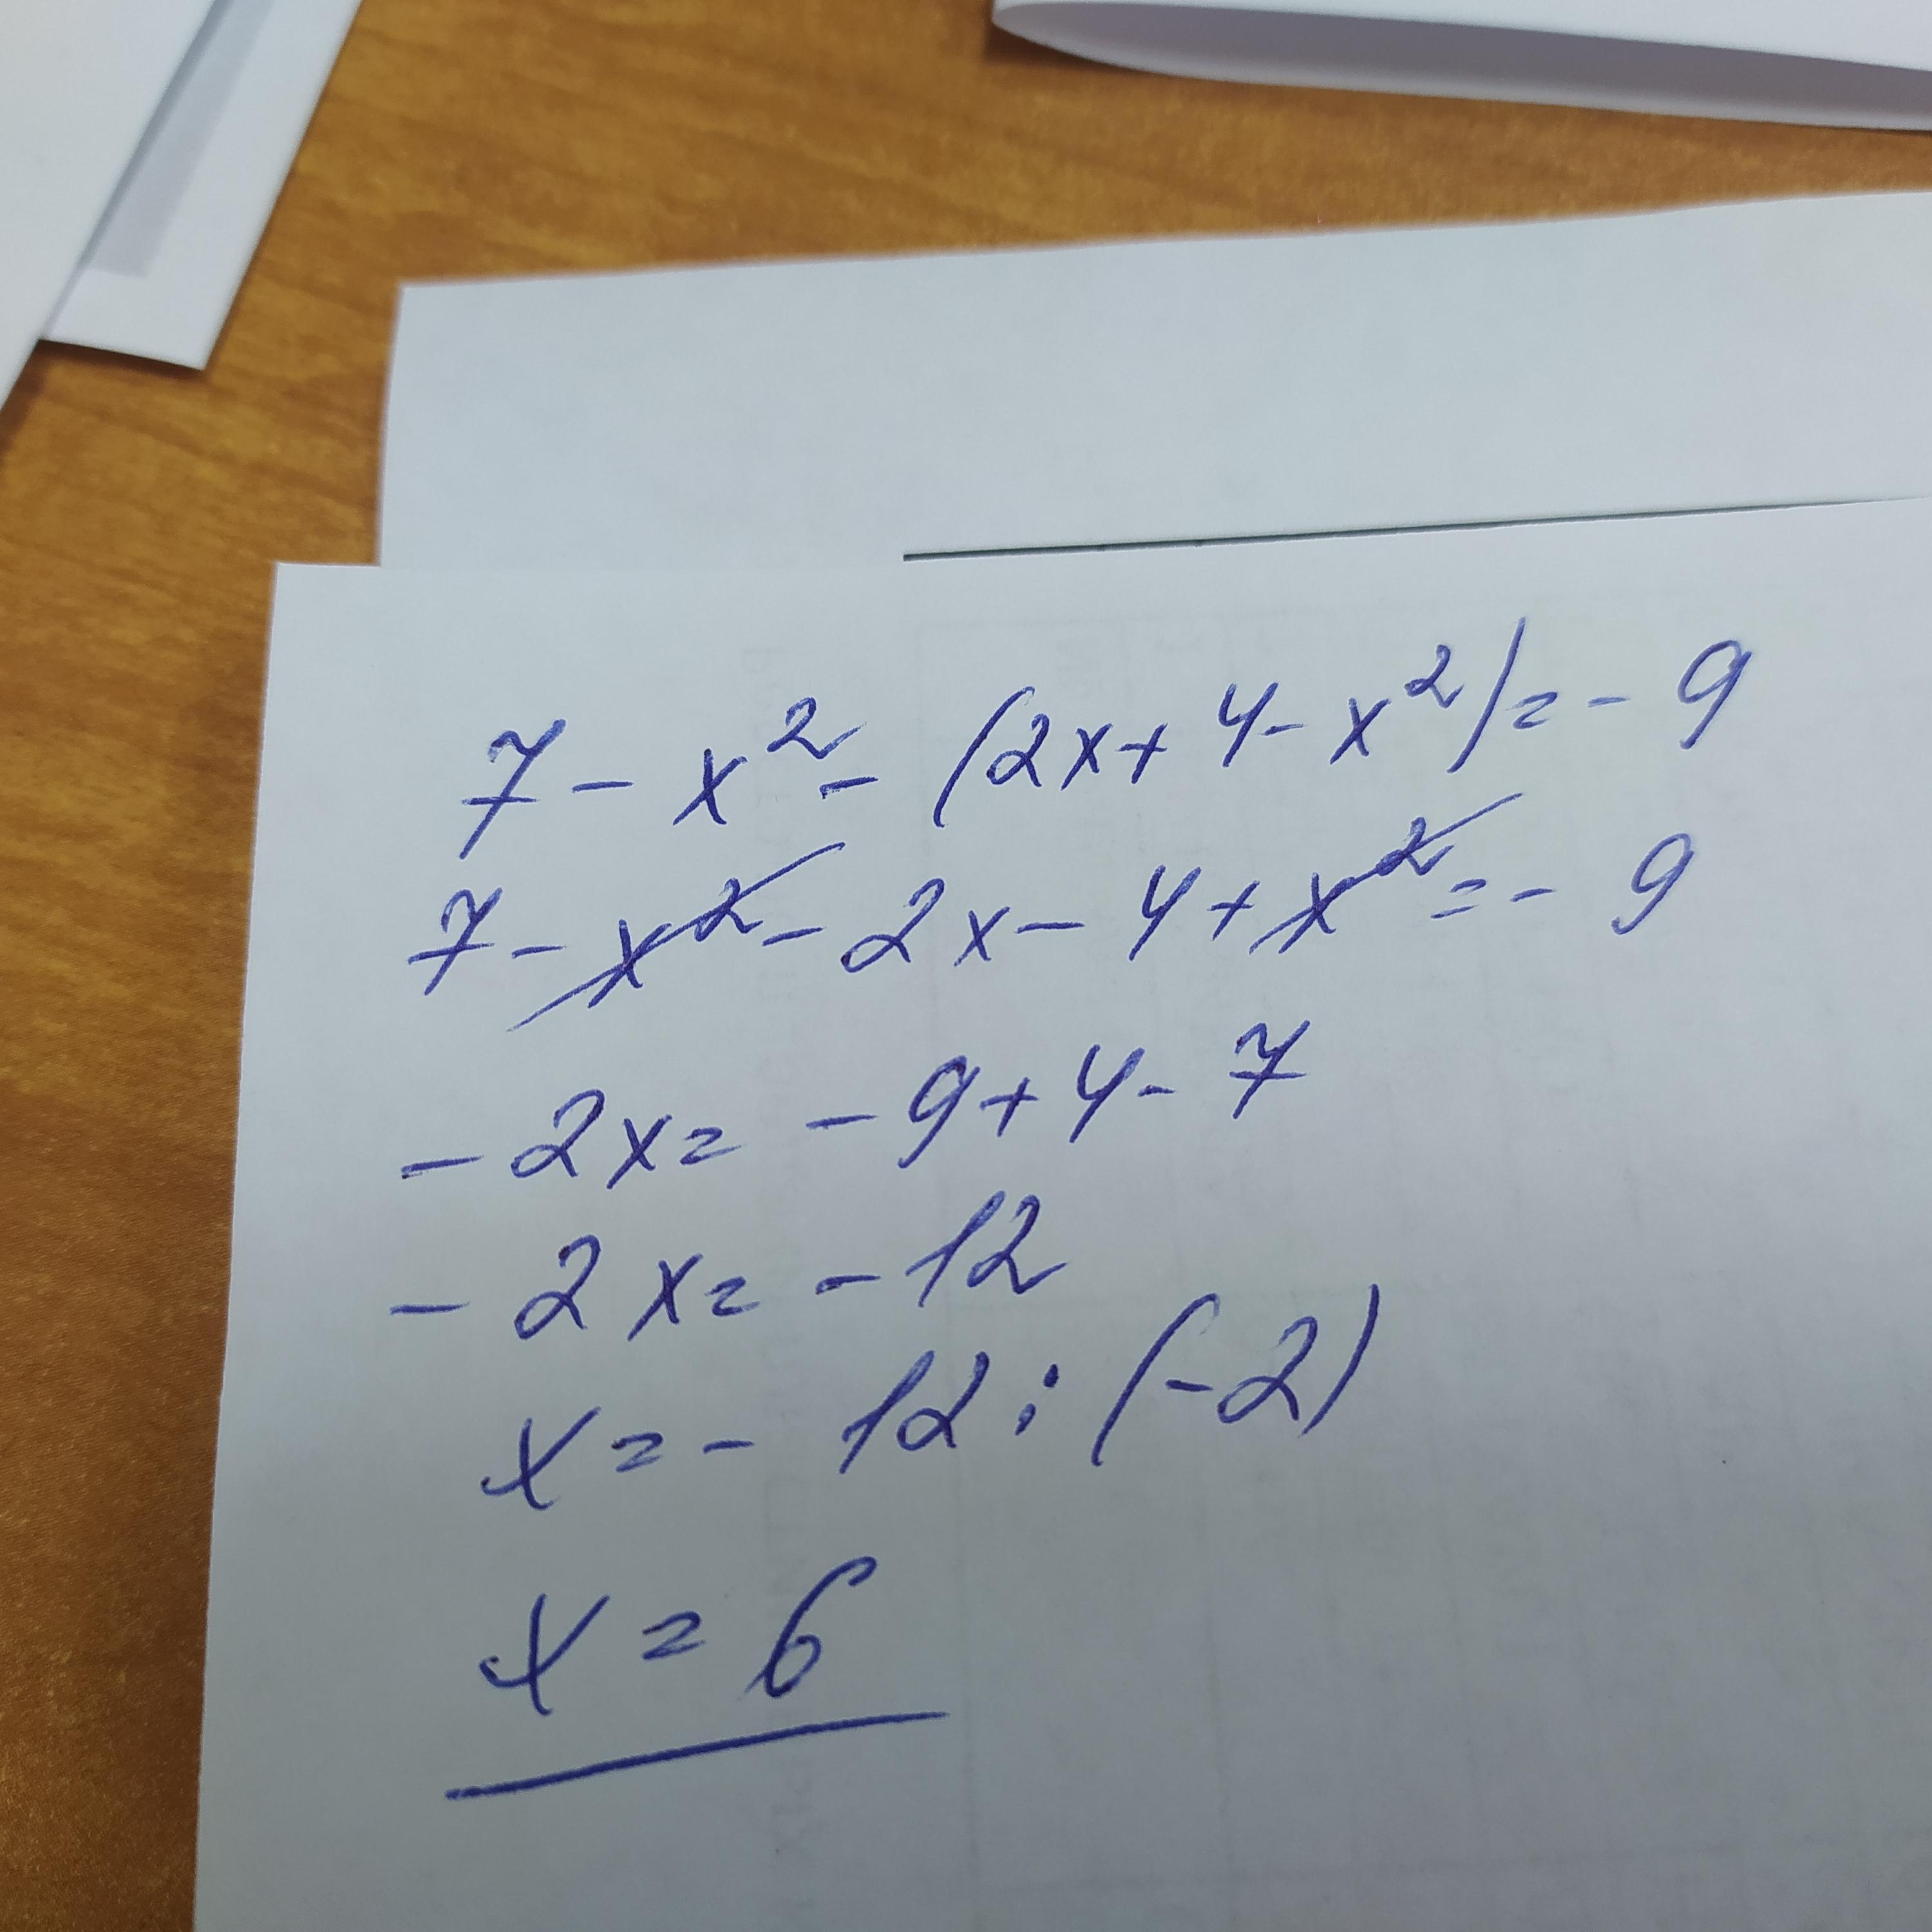 7 - x² - (2x + 4 - x²) = - 9
7 - x² - 2x - 4 + x² = - 9
- 2x = - 9 + 4 - 7
- 2x = - 12
x = - 12 : (-2)
x = 6